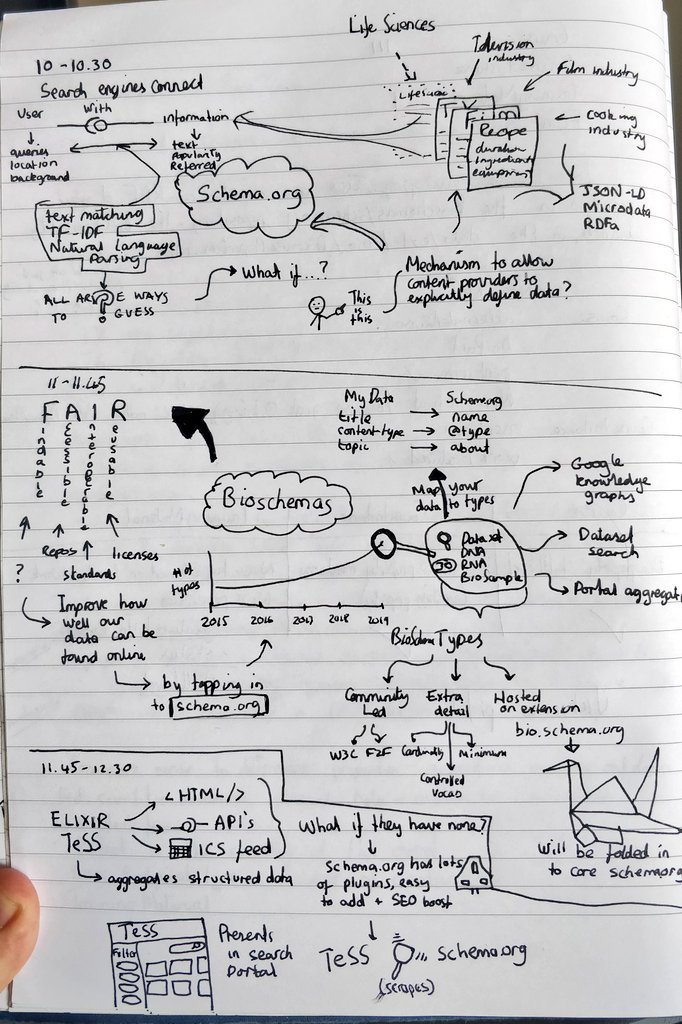 Life Sciences
10 - 10.30
Search engines connect
Television
industry
Film industry
Cooking
industry
User
With
information
queries
location
background
text
popularity
Referred
Life Scienc
TV
Film
Recipe
duration
ingredients
equipment
JSON-LD
Microdata
RDFa
Schema.org
text matching
TF-IDF
Natural Language
Parsing
ALL ARE WAYS
TO GUESS
What if...?
This
is
this
Mechanism to allow
content providers to
explicitly define data?
11 - 11.45
F A I R
Findable
Accessible
Interoperable
Reusable
?
Repos
standards
licenses
Improve how
well our
data can be
found online
by tapping in
to schema.org
Bioschemas
My Data
Schema.org
title → name
content-type → @type
topic → about
Map your
data to types
# of
types
2015 2016 2017 2018 2019
Dataset
DNA
RNA
BioSample
Google
knowledge
graphs
Dataset
search
Portal aggregati
BioSchema Types
Community
Led
Extra
detail
Hosted
on extension
W3C F2F
Cardinality
Minimum
Controlled
Vocab
bio.schema.org
Will be folded in
to core schema.org
11.45 - 12.30
ELIXIR
TeSS
<HTML/>
API's
ICS feed
aggregates structured data
What if they have none?
Schema.org has lots
of plugins, easy
to add + SEO boost
TeSS
Filter
Presents
in search
portal
TeSS
(scrapes)
schema.org